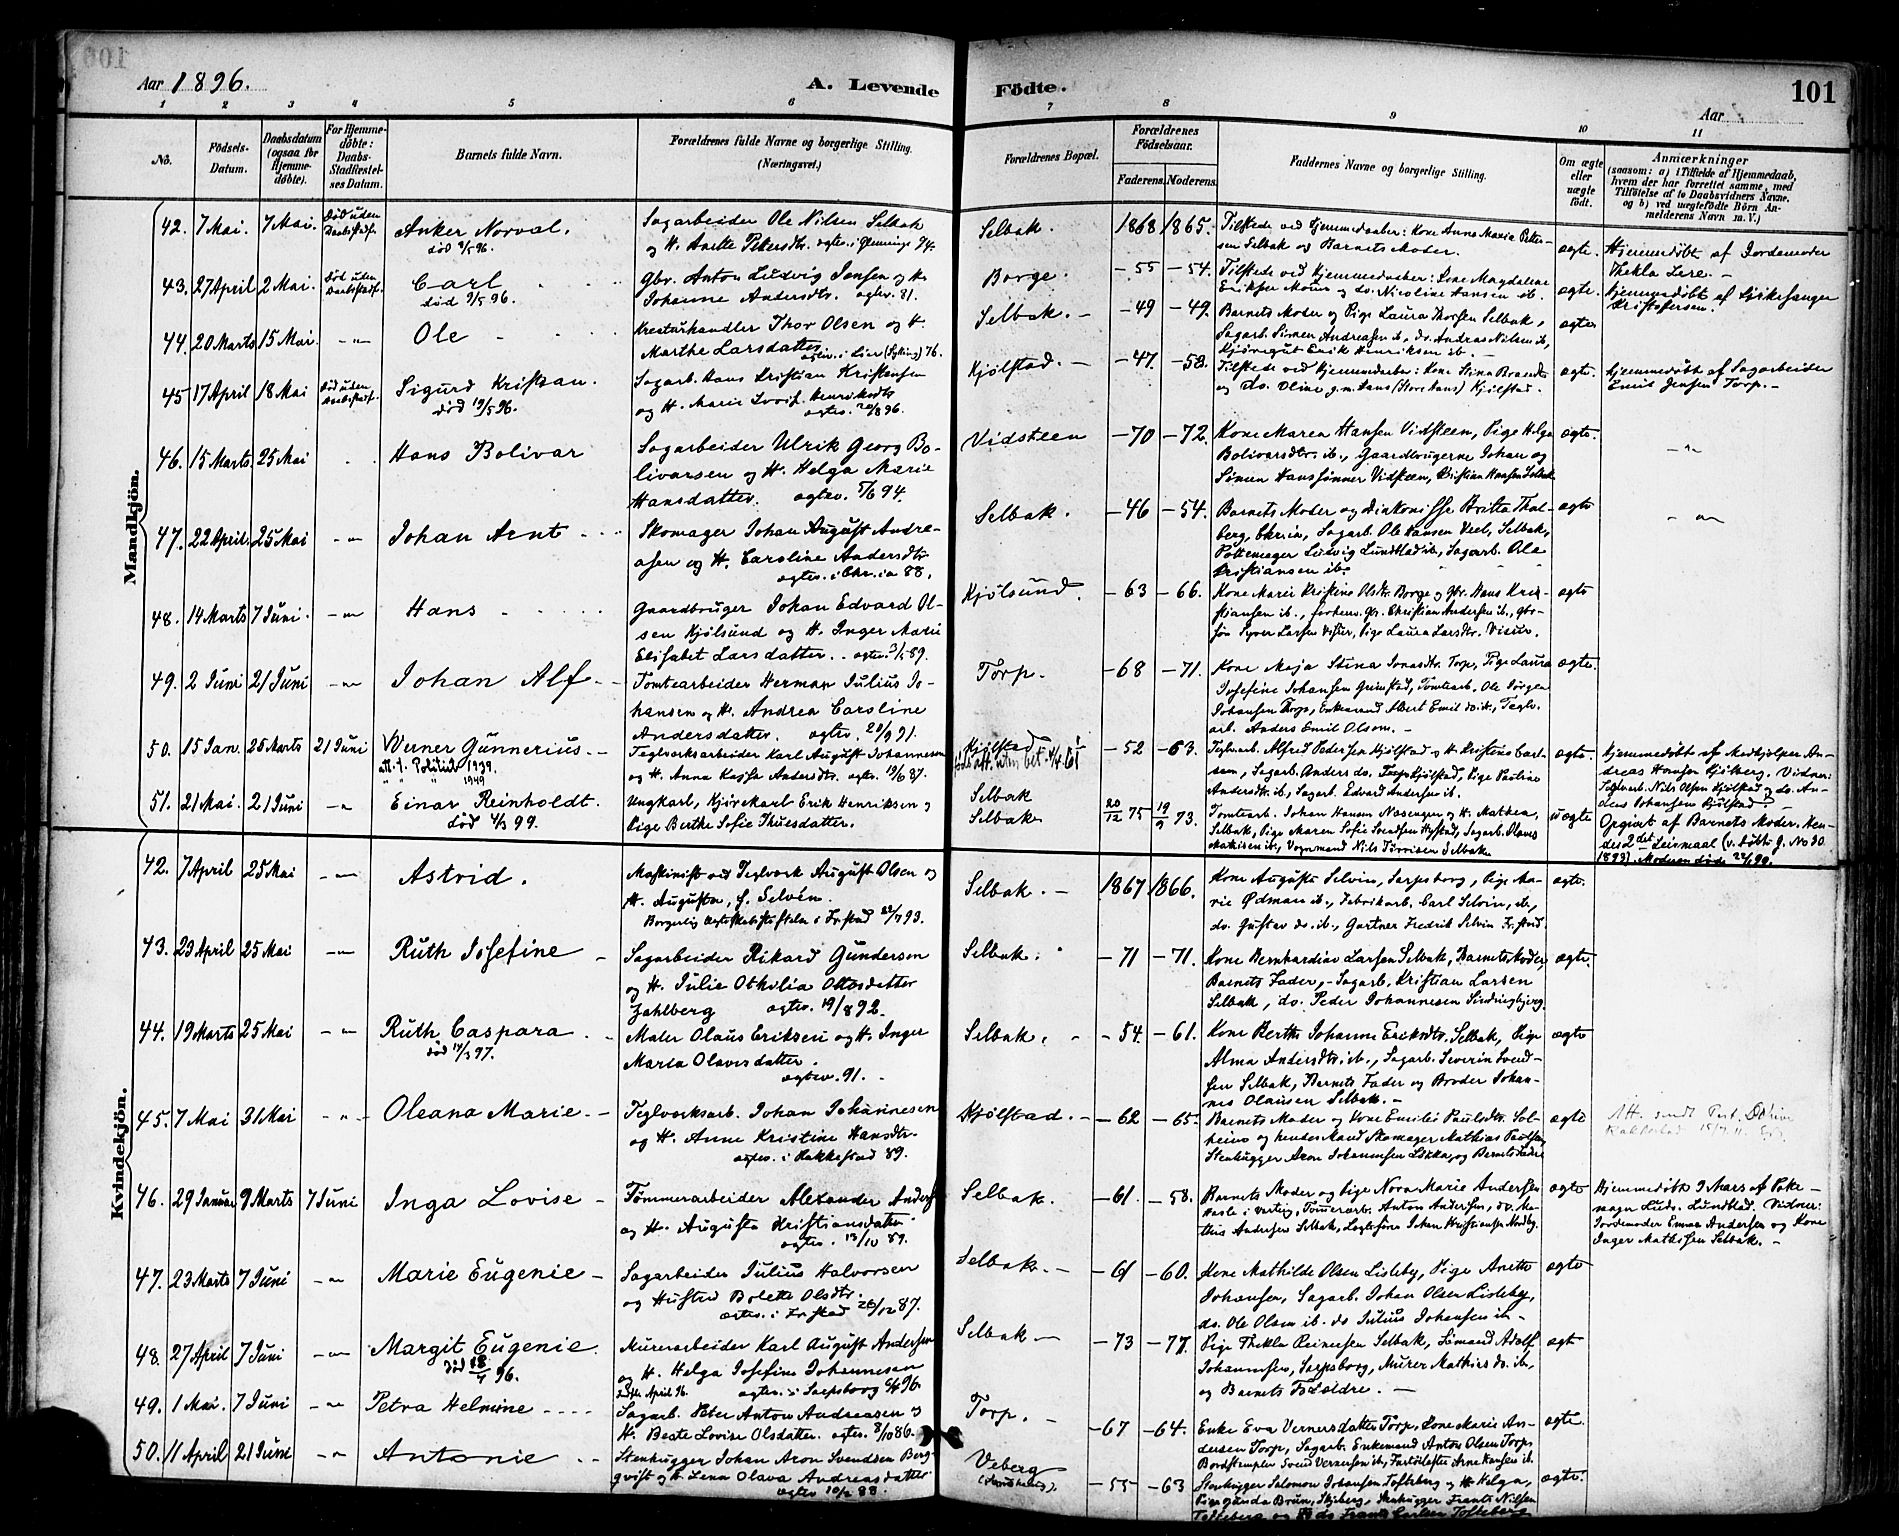 Aar 1896.
A. Levende
Födte.
101
Aar
1 2 3 4 5 6 7 8 9 10 11
No.
Födsels-Datum.
Daabsdatum (ogsaa for Hjemmedøbte).
For Hjemmedøbte: Daabs-Stadfæstelses Datum.
Barnets fulde Navn.
Forældrenes fulde Navne og borgerlige Stilling. (Næringsvei.)
Forældrenes Bopæl.
Forældrenes Födselsaar.
Faderens. Moderens.
Faddernes Navne og borgerlige Stilling.
Om ægte eller uægte födt.
Anmærkninger
(saasom: a) i Tilfælde af Hjemmedaab,
hvem der har forrettet samme, med
Tilföielse af to Daabsvidners Navne.
og b) ved uægtefödte Börn An-
melderens Navn m. V.)
Mandkjön.
42. 7 Mai. 7 Mai. Død uden Daabsstadf. Anker Norval. død 8/5 96.
Sagarbeider Ole Nilsen Selbak
og H. Anette Petersdtr. ægtev. i Glemminge 94.
Selbak. 1868 1865.
Tilstede ved Hjemmedaaben: Kone Anna Maria Peter-
sen Selbak og Barnets Moder. ægte.
Hjemmedøbt af Jordemoder
Thekla Lere. -
43. 27 April 2 Mai. Død uden Daabsstadf. Carl død 9/5 96.
Gbr. Anton Ludvig Jensen og H.
Johanne Andersdtr. ægtev. 81.
Borge. - 55 - 54.
Tilstede ved Hjemmedaaben: Kone Magdalene
Eriksen Moum og do. Nicoline Hansen ib. ægte.
Hjemmedøbt af Kirkesanger
Kristofersen.
44. 20 Marts 15 Mai. - " - Ole
Kreaturhandler Thor Olsen og H.
Marthe Larsdatter ægtev. i Lier (Sylling) 76.
Selbak. - - 49 - 49.
Barnets Moder og Pige Laura Thorsen Selbak,
Sagarb. Simen Andreasen ib., do. Andreas Nilsen ib,
Kjøregut Erik Henriksen ib. - ægte
45 17 April 18 Mai Død uden Daabsstadf. Sigurd Kristian. død 19/5 96.
Sagarb. Hans Kristian Kristensen
og H. Marie Lovise Henriksdtr
ægtev. 20/3 96.
Kjølstad. - - 47. - 52.
Tilstede ved Hjemmedaaben: Kone Stina Brandt
og do. Oline g.m. Hans (Store Hans) Kjølstad. ægte.
Hjemmedøbt af Sagarbeider
Emil Jensen Torp. -
46. 15 Marts 25 Mai Hans Bolivar
Sagarbeider Ulrik Georg Bo-
livarsen og H. Helga Marie
Hansdatter. ægtev. 5/6 94.
Vidsteen - 70 - 72.
Kone Maren Hansen Vidsteen, Pige Helga
Bolivarsdtr. ib., Gaardbrugerne Johan og
Simen Hanssønner Vidsteen, Kristian Hansen Selbak ægte.
- " -
47. 22 April. 25 Mai - " - Johan Arnt
Skomager Johan August Andre-
asen og H. Caroline Andersdtr
ægtev. i Chr.ia 88.
Selbak. - 46 - 54.
Barnets Moder og Diakonisse Britta Thal-
berg, Chr.ia, Sagarb. Ole Hansen Veel, Selbak,
Pottemager Ludvig Lundblad ib., Sagarb. Ole
Kristiansen ib. ægte
- " -
48. 14 Marts 7 Juni. - " - Hans
Gaardbruger Johan Edvard Ol-
sen Kjølsund og H. Inger Marie
Elisabet Larsdatter. ægtev. 89.
Kjølsund. - 63 - 66.
Kone Marie Kristine Olsdtr. Borge og Gbr. Hans Kris-
tiansen ib., forhens. Gbr. Christian Andersen ib., Gbr-
søn Syver Larsen Visur, Pige Laura Larsdtr. Visur. ægte
49. 2 Juni 21 Juni - " - Johan Alf
Tomtearbeider Herman Julius Jo-
hansen og H. Andrea Caroline
Andersdatter. ægtev. 20/9 91.
Torp. - 68 - 71.
Kone Maja Stina Jonasdtr. Torp, Pige Laura
Josefine Johansen Grimstad, Tomtearb. Ole Jörgen
Johansen Torp, Enkemand Albert Emil do ib., Teglv.
arb. Anders Emil Olsen. - ægte.
50. 15 Jan. 25 Marts 21 Juni Werner Gunnerius.
att. t. Politiet 1939.
" " " 1949
Teglverksarbeider Karl August Johannesen
og H. Anna Kajsa Andersdtr. ægtev. 19/6 87.
Kjølstad - 52 - 63.
Teglv.arb. Alfred Pedersen Kjølstad og H. Kristine Carl-
sen, Sagarb. Anders do. Torp Kjølstad, Pige Pauline
Andersdtr. ib., Sagarb. Edvard Andersen ib. ægte.
Hjemmedøbt af Medhjelper An-
dreas Hansen Kjølberg. Vidner:
Teglverb. Nils Olsen Kjølstad og do. An-
ders Johansen Kjølstad. -
51. 21 Mai. 21 Juni - " Einar Reinholdt. død 4/3 99.
Ungkarl, Kjørekarl Erik Henriksen og
Pige Berthe Sofie Thuesdatter.
Selbak
Selbak 20/12 75 19/9 73.
Tomtearb. Johan Hansen Nasengen og H. Mathea,
Selbak, Pige Maren Sofie Svendsen Hystad, Sagarb. Olaves
Mathisen ib., Vognmand Nils Torrisen Selbak. uægte
Opgivet af Barnets Moder. Hen-
des 2det Leiermaal (v. Døbte g. No 30
1893). Moderen døde 24/ 99.
Kvindekjön.
42. 7 April 25 Mai - " - Astrid.
Maskinist ved Teglverk August Olsen og
H. Augusta, f. Selvén.
Borgerlig Ægteskabsstiftelse i Fr.stad 93.
Selbak. - 1867 1866.
Kone Augusta Selvin, Sarpsborg, Pige Ma-
rie Ödman ib., Fabrikarb. Carl Selvin, ib,
do. Gustav do. ib., Gartner Fredrik Selvin Fr.stad. ægte.
43. 23 April 25 Mai - " - Ruth Josefine
Sagarbeider Rikard Gundersen
og H. Julie Othilia Ottosdatter
Zahlberg ægtev. 19/8 92.
Selbak. - 71 - 71.
Kone Bernhardine Larsen Selbak, Barnets Moder,
Barnets Fader, - Sagarb. Kristian Larsen
Selbak, do. Peder Johannesen Sindringbjerg. ægte.
44. 19 Marts 25 Mai - " - Ruth Caspara død 97.
Maler Olaus Eriksen og H. Inger
Maria Olavesdatter.
ægtev. 91. -
Selbak. - 54. - 61.
Kone Berthe Johanne Eriksdtr. Selbak, Pige
Alma Andersdtr. ib., Sagarb. Severin Svend-
sen Selbak, Barnets Fader og Broder Johan-
nes Olausen Selbak. - ægte
45. 7 Mai 31 Mai - " - Oleana Marie
Teglverksarb. Johan Johannesen
og H. Anne Kristine Hansdtr.
ægtev. i Rakkestad 89.
Kjølstad. - - 62 - 65.
Barnets Moder og Kone Emilie Paulsdtr. Sol-
heim og hendes Mand Skomager Mathias Paulsen,
Stenhugger Aron Johannesen Lisleby og Barnets Fader ægte
Att. sendt
46. 29 Januar 9 Marts 7 Juni Inga Lovise
Tømmerarbeider Alexander Anders.
og H. Augusta Kristiansdatter.
ægtev. 13/10 89.
Selbak. - 61. - 58.
Barnets Moder og Pige Nora Marie Andersen
Hasle i Varteig, Tømmerarb. Anton Andersen, do. Ma-
this Andersen Selbak, Lægtesøns Johan Kristiansen Moeby. ægte
Hjemmedøbt 9 Mars af Potte-
mager Ludv. Lundblad. Vidner:
Jordemoder Emma Andersen og Kone
Inger Mathisen Selbak. -
47. 23 Marts 7 Juni - " - Marie Eugenie
Sagarbeider Julius Halvorsen
og Hustru Bolette Olsdtr.
ægtev. i Fr.stad 26/12 87.
Selbak. - - 61 - 60.
Kone Mathilde Olsen Lisleby, Pige Anette
Johansen, Sagarb. Johan Olsen Lisleby,
do. Ole Olsen ib. do Julius Johansen ib - ægte
48. 27 April 7 Juni - " - Margit Eugenie. Död 96.
Murerarbeider Karl August Andersen
og H. Helga Josefine Johannesen
ægtev. i Sarpsborg 96.
Selbak - - 73 - 77.
Pige Thekla Reinersen Selbak, Sömand Adolf
Johannesen, Sarpsborg, Murer Mathies do. ib.,
og Barnets Forældre. - ægt
49. 1 Mai. 7 Juni - " - Petra Helmine
Sagarb. Peter Anton Andreasen og
H. Beate Lovise Olsdatter. ægtev. 8/10 86.
Torp. - - 67 - 64.
Enke Eva Vernersdatter Torp, Kone Marie An-
dersen Torp, Sagarb. Enkemand Anton Olsen Torp,
Bordstempler Svend Vernersen ib, Fartøiefører Arne Hansen ib. ægte.
50. 11 April 21 Juni - " Antonie
Stenhugger Johan Aron Svendsen Berg-
qvist og H. Lena Olava Andreasdatter
ægtev. 10/2 88.
Veberg - 55 - 63
Stenhugger Salomon Johansen Tofteberg og H. Helga,
Pige Gunda Bruun, Skjeberg, Stenhugger Frants Nilsen
Tofteberg og do Frans Carlsen Tofteberg ægte.